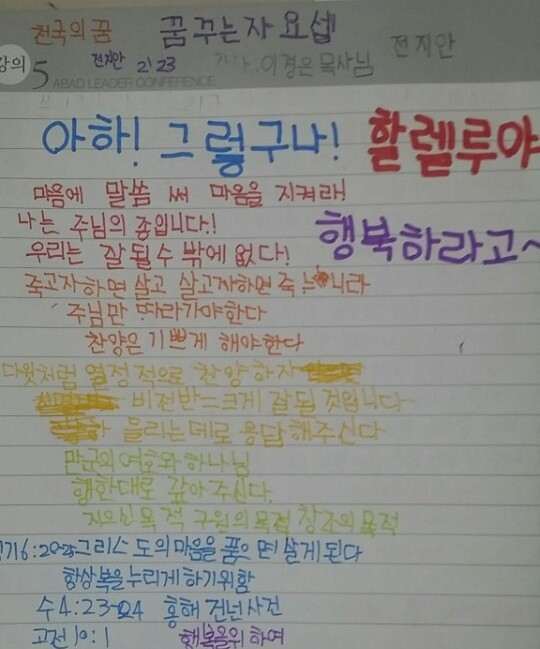 천국의 꿈 꿈꾸는자 요셉
강의 5 전지안 2/23 이경은 목사님 전지안
ABAD LEADER CONFERENCE
아하! 그렇구나! 할렐루야
마음에 말씀 써 마음을 지켜라!
나는 주님의 종입니다!
행복하라고~
우리는 잘 될 수 밖에 없다!
죽고자하면 살고 살고자하면 죽느니라
주님만 따라가야한다
찬양은 기쁘게 해야한다
다윗처럼 열정적으로 찬양하자
비전반=크게 잘 될 것입니다
들리는데로 응답해주신다
만군의 여호와 하나님
행한대로 갚아주신다.
지으신 목적 구원의 목적 창조의 목적
6:20-25 그리스도의 마음을 품으면 살게된다
항상복을누리게하기위함
수4:23-24 홍해 건넌사건
고전 10:1 행복을위하여